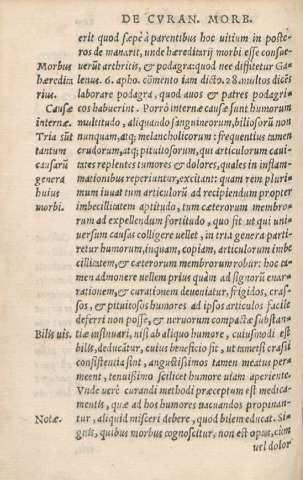 DE CVRAN. MORB.
erit quod sæpè à parentibus hoc uitium in poste-
ros de manarit, unde hæreditarij morbi esse consue-
Morbus uerūt arthritis, & podagra: quod nec diffitetur Ga-
hæredita lenus. 6. apho. cōmento iam dicto. 28. multos dicēs
rius. laborare podagra, quod auos & patres podagri-
Causæ cos habuerint. Porrò internæ causæ sunt humorum
internæ. multitudo, aliquando sanguineorum, biliosorū non
Tria sūt nunquam, atq; melancholicorum: frequentius tamen
tantum crudorum, atq; pituitosorum, qui articulorum caui-
causarū tates replentes tumores & dolores, quales in inflam-
genera mationibus reperiuntur, excitant: quam rem pluri-
huius mum iuuat tum articulorū ad recipiendum propter
morbi. imbecillitatem aptitudo, tum cæterorum membro-
rum ad expellendum fortitudo, quo sit ut qui uni-
uersum causas colligere uellet, in tria genera parti-
retur humorem, inquam, copiam, articulorum imbe
cillitatem, & cæterorum membrorum robur: hoc ta-
men admonere uellem prius quàm ad signorū enar-
rationem, & curationem deueniatur, frigidos, cras-
sos, & pituitosos humores ad ipsos articulos facile
deferri non posse, & neruorum compactæ substan-
Bilis uis. tiæ insinuari, nisi ab aliquo humore, cuiusmodi est
bilis, deducātur, cuius beneficio fit, ut tametsi crassi
consistentia sint, angustissimos tamen meatus per-
meent, tenuissimo scilicet humore uiam aperiente.
Vnde uerè curandi methodi præceptum est medica-
mentis, quæ ad hos humores uacuandos propinan-
Notæ. tur, aliquid misceri debere, quod bilem educat. Si-
gnis, quibus morbus cognoscitur, non est opus, cùm
uel dolor